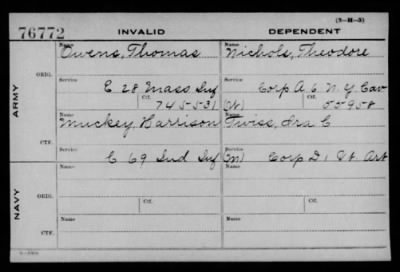 (3-H-3)
76772 INVALID DEPENDENT
Name Name
Owens, Thomas Nichols, Theodore
ORIG.
Service Service
E 28 Mass Inf Corp A, 6 N.Y. Cav
Ctf. Ctf.
745531 (W) 55958
ARMY
Name Name
Muckey, Harrison Twiss, Ira C
CTF.
C 69 Ind Inf (M) Corp D, 1 Vt. Art
Name Name
ORIG.
Service Service
Ctf. Ctf.
NAVY
Name Name
CTF.